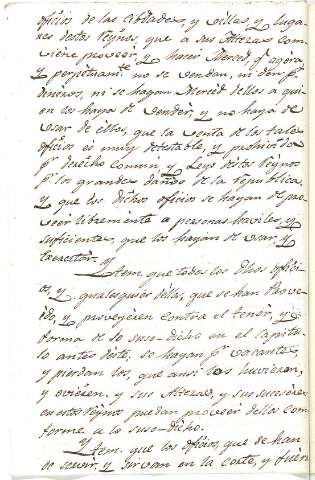 oficios de las Cibdades, y villas, y luga-
res destos Reynos, que a sus Altezas con-
viene proveer, y hacer Merced, qe agora
y perpetuamte no se vendan, ni den pr
dineros, ni se hagan Merced dellos a qui-
en los haya de vender, y no haya de
usar de ellos, que la venta de los tales
oficios es muy detestable, y prohivido
pr derecho comun y Leys destos Reynos
pr los grandes daños de la republica,
y que los dichos oficios se hayan de pro-
veer libremente a personas haviles, y
suficientes, que los hayan de usar, y
Executar.
Ytem. que todos los dhos ofici-
os, y qualesquier dellos, que se han Provei-
do, y proveyeren contra el tenor, y
forma de lo suso-dicho en el capitu-
lo antes deste, se hayan pr vacantes,
y pierdan los, que ansi los huvieren,
y ovieren, y sus Altezas, y sus sucesores
en estos Reynos puedan proveer dellos con-
forme a lo suso-dicho.
Ytem. que los oficios, que de han
de servir, y sirvan en la Corte, y fuer